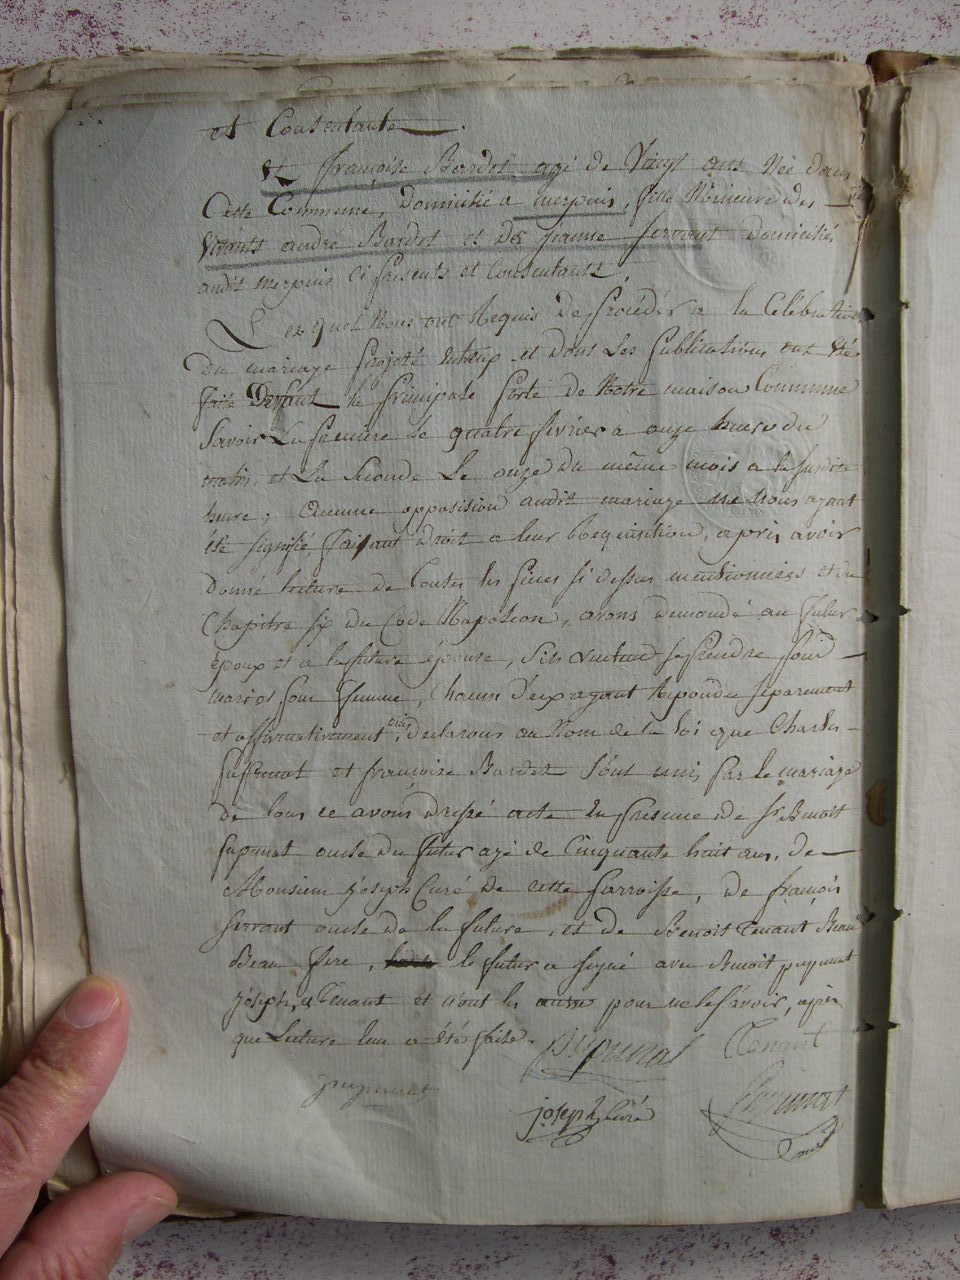 et Consentante.
Et françoise Bordet agé de Vingt ans Née dans
Cette Commune, Domicilié a merpins, fille Mineure des
Vivants andré Bordet et de jeanne servant domiciliés
audit merpins ci presents et Consentants,
Lesquels Nous ont Requis de proceder a la Célébration
Du mariage projeté Entreux et dont Les publications ont été
faite Devant la principale porte de Notre maison Commune
Savoir La premiere le quatre février a onze heure du
matin, et La seconde Le onze du même mois a la susdite
heure; aucune opposition audit mariage ne Nous ayant
été signifié, faisant droit a leur Requisition, après avoir
Donné lecture de Toutes les pieces si dessus mentionnées et du
Chapitre six du Code Napoleon, avons demandé au futur
époux et a la future épouse, s'ils veulent se prendre pour
maris et pour femme, Chacun d'eux ayant Repondu séparement
et affirmativement oui, declarons au Nom de la loi que Charles
et françoise Bordet sont unis par le mariage
de tous ce avons dressé acte En presence de sr Benoit
oncle du futur agé de Cinquante huit ans, de
Monsieur joseph Curé de cette parroisse, de françois
servant oncle de la future, et de Benoit Tenant Beau
Beau frere, le futur a signé avec Benoit
joseph, et Tenant et n'ont les autre pour ne le savoir, après
que Lecture leur a été faite.
Tenant
joseph Curé